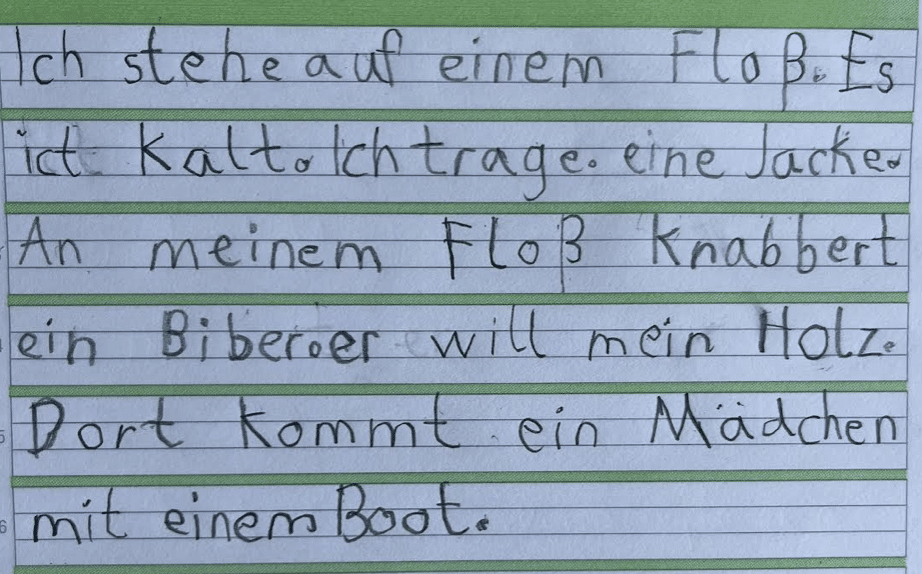 Ich stehe auf einem Floß. Es
ict kalt. Ich trage. eine Jacke.
An meinem Floß knabbert
ein Biber. er will mein Holz.
Dort kommt ein Mädchen
mit einem Boot.